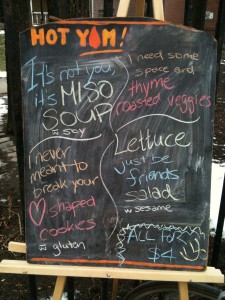 HOT YAM!
It's not you,
it's MISO
SOUP
w soy
I need some
space and
thyme
roasted veggies
I never
meant to
break your
shaped
cookies
w gluten
Lettuce
just be
friends
salad
w sesame
ALL FOR
$4